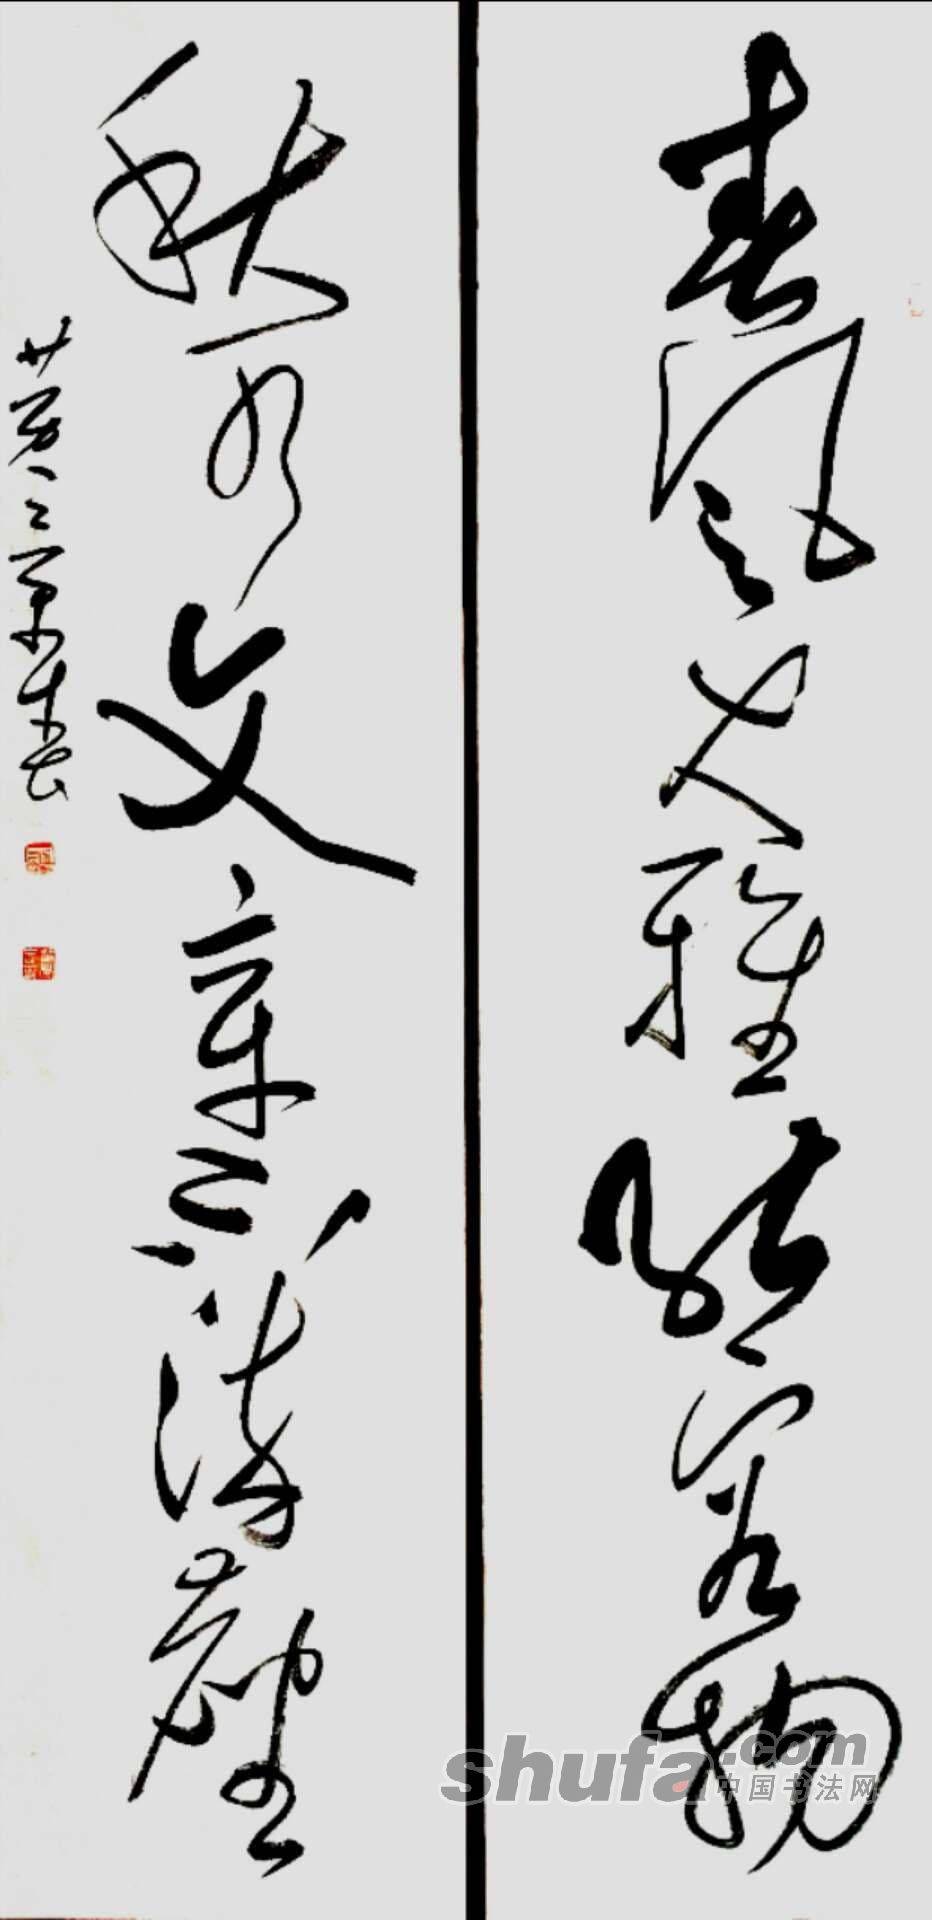 春风大雅能容物
秋水文章不染尘
shufa.com
中国书法网